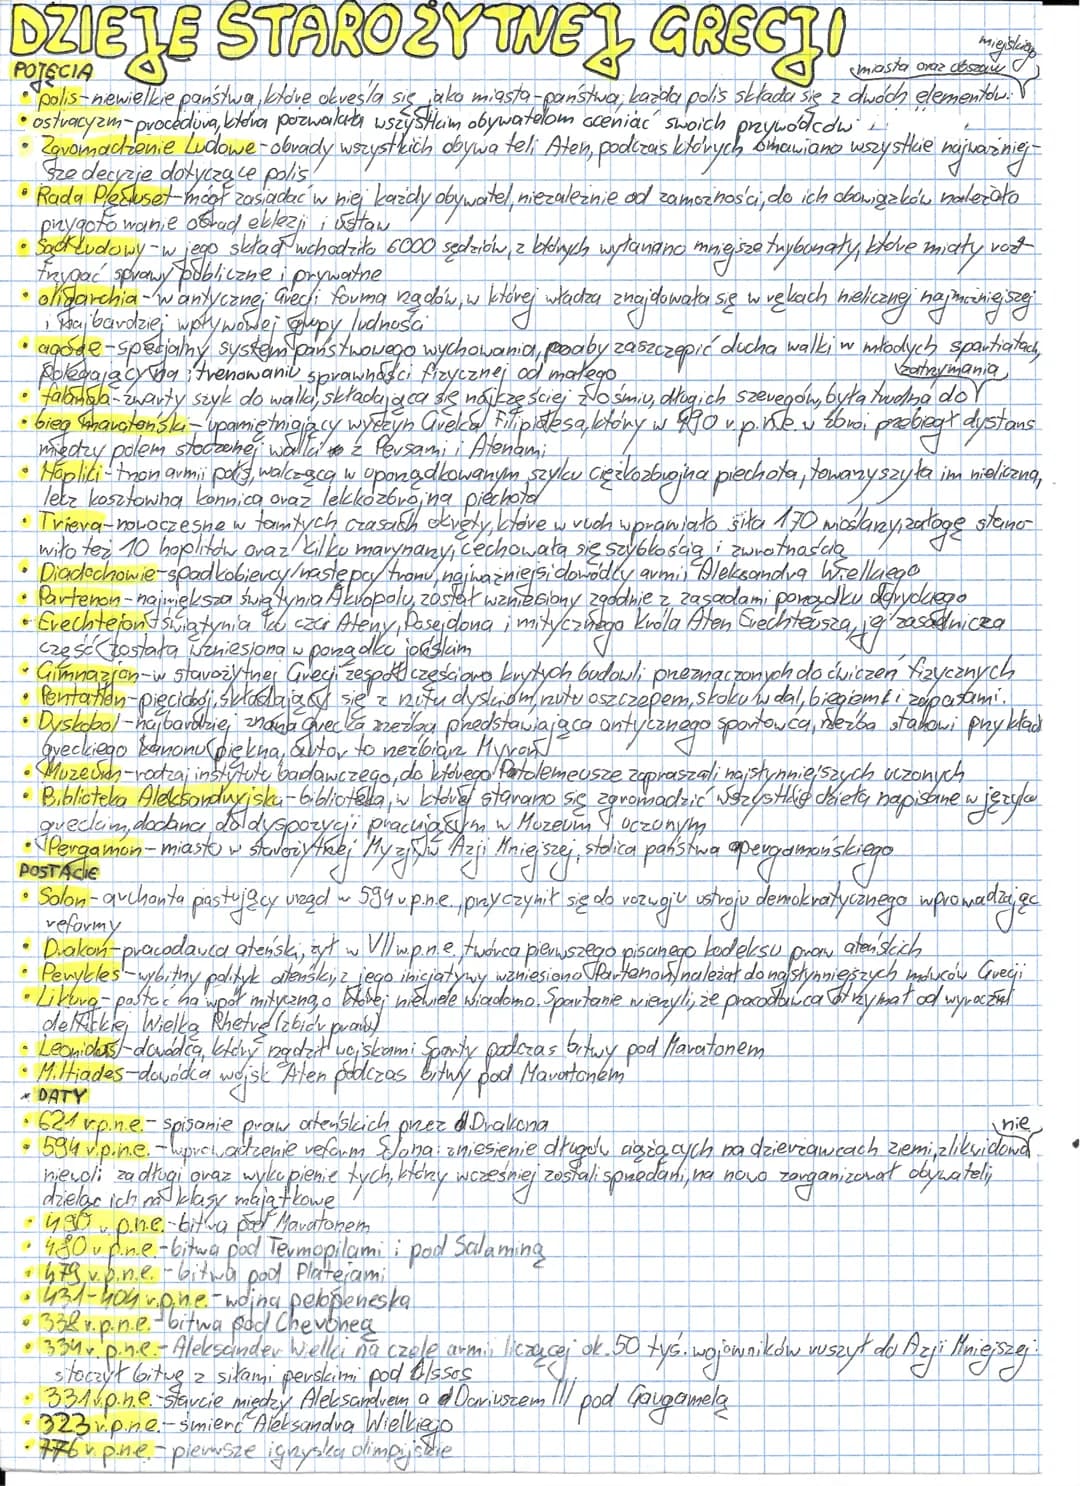 DZIEJE STAROŻYTNEJ GRECJI
POJĘCIA
miasta oraz obszaru miejskiego
• polis-niewielkie państwa, które określa się jako miasta-państwa, każda polis składa się z dwóch elementów:
• ostracyzm-procedura, która pozwalała wszystkim obywatelom oceniać swoich przywódców
• Zgromadzenie Ludowe-obrady wszystkich obywateli Aten, podczas których omawiano wszystkie najważniej-
sze decyzje dotyczące polis
• Rada Pięciuset-mógł zasiadać w niej każdy obywatel, niezależnie od zamożności, do ich obowiązków należało
przygotowanie obrad eklezji i ustaw
• Sąd Ludowy-w jego skład wchodziło 6000 sędziów, z których wyłaniano mniejsze trybunały, które miały rozs-
trzygać sprawy publiczne i prywatne
• oligarchia-w antycznej Grecji forma rządów, w której władza znajdowała się w rękach nielicznej najmożniejszej
i najbardziej wpływowej grupy ludności
• agoge-specjalny system państwowego wychowania, poaby zaszczepić ducha walki w młodych spartiatach,
polegający na trenowaniu sprawności fizycznej od małego
zatrzymania
• falanga-zwarty szyk do walki, składająca się najczęściej z ośmiu, długich szeregów, była trudna do
• bieg maratoński-upamiętniający wyczyn Greka Filipidesa, który w 490 v.p.n.e. w zbroi przebiegł dystans
między polem stoczonej walki z Persami i Atenami
• Hoplici-trzon armii polis, walcząca w uporządkowanym szyku ciężkozbrojna piechota, towarzyszyła im nieliczna,
lecz kosztowna konnica oraz lekkozbrojna piechota
• Triera-nowoczesne w tamtych czasach okręty, które w ruch wprawiało siła 170 wioślarzy, załogę stano-
wiło też 10 hoplitów oraz kilku marynarzy, cechowała się szybkością i zwrotnością
• Diadochowie-spadkobiercy/następcy tronu, najważniejsi dowódcy armii Aleksandra Wielkiego
• Partenon-największa świątynia Akropolu, został wzniesiony zgodnie z zasadami porządku doryckiego
• Erechtejon-świątynia ku czci Ateny, Posejdona i mitycznego króla Aten Erechteusza, jej zasadnicza
część została wzniesiona w porządku jońskim
• Gimnazjon-w starożytnej Grecji zespół częściowo krytych budowli przeznaczonych do ćwiczeń fizycznych
• Pentatlon-pięciobój, składający się z rzutu dyskiem, rzutu oszczepem, skoku w dal, biegiem i zapasami.
• Dyskobol-najbardziej znana grecka rzeźba, przedstawiająca antycznego sportowca, rzeźba stanowi przykład
greckiego kanonu piękna, autor to rzeźbiarz Myron
• Muzeum-rodzaj instytutu badawczego, do którego Ptolemeusze zapraszali najsłynniejszych uczonych
• Biblioteka Aleksandryjska-biblioteka, w której starano się zgromadzić wszystkie dzieła napisane w języku
greckim, dodana do dyspozycji pracującym w Muzeum uczonym
• Pergamon-miasto w starożytnej Myzji w Azji Mniejszej, stolica państwa pergamońskiego
POSTACIE
• Solon-archonta pastujący urząd w 594 v.p.n.e., przyczynił się do rozwoju ustroju demokratycznego wprowadzając
reformy
• Drakon-pracodawca ateński, żył w VII w.p.n.e, twórca pierwszego pisanego kodeksu praw ateńskich
• Perykles-wybitny polityk ateński, z jego inicjatywy wzniesiono Partenon, należał do najsłynniejszych mówców Grecji
• Likurg-postać na wpół mityczna, o której niewiele wiadomo. Spartanie wierzyli, że pracodawca otrzymał od wyroczni
delfickiej Wielką Rhetrę (zbiór praw)
• Leonidas-dowódca, który rządził wojskami Sparty podczas bitwy pod Maratonem
• Miltiades-dowódca wojsk Aten podczas bitwy pod Maratonem
• DATY
• 621 v.p.n.e.-spisanie praw ateńskich przez Drakona
nie
• 594 v.p.n.e.-wprowadzenie reform Solona: zniesienie długów ciążących na dzierżawcach ziemi, zlikwidowa
niewoli za długi oraz wykupienie tych, którzy wcześniej zostali sprzedani, na nowo zorganizował obywateli,
dzieląc ich na klasy majątkowe
• 490 v.p.n.e.-bitwa pod Maratonem
• 480 v.p.n.e.-bitwa pod Termopilami i pod Salaminą
• 479 v.p.n.e.-bitwa pod Platejami
• 431-404 v.p.n.e.-wojna peloponeska
• 338 v.p.n.e.-bitwa pod Cheroneą
• 334 v.p.n.e.-Aleksander Wielki na czele armii liczącej ok. 50 tyś. wojowników ruszył do Azji Mniejszej.
stoczył bitwę z siłami perskimi pod Issos
• 331 v.p.n.e.-starcie między Aleksandrem a Dariuszem III pod Gaugamelą
• 323 v.p.n.e.-śmierć Aleksandra Wielkiego
• 776 v.p.n.e.-pierwsze igrzyska olimpijskie